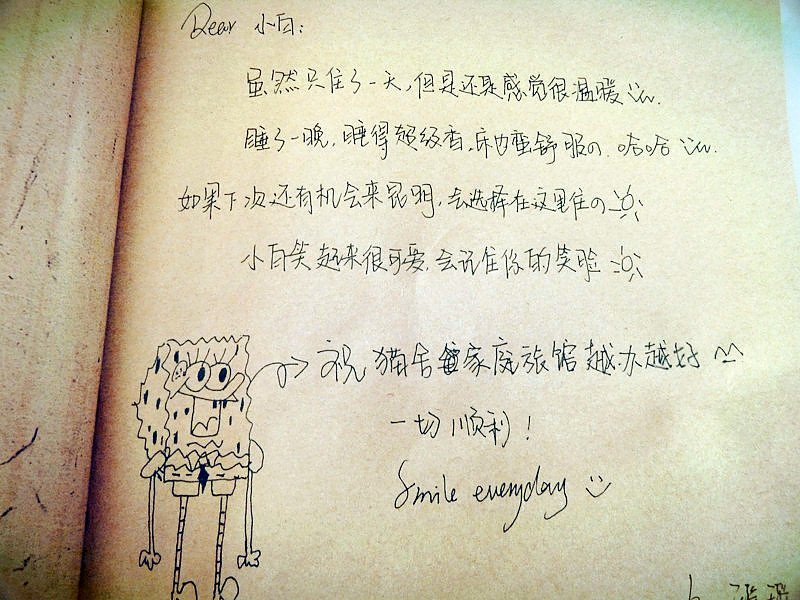 Dear 小白:
虽然只住了一天,但是还是感觉很温暖
睡了一晚,睡得超级香,床也蛮舒服の.哈哈
如果下次还有机会来昆明,会选择在这里住の
小白笑起来很可爱,会记住你的笑脸
祝 猫舍家庭旅馆越办越好
一切顺利!
Smile everyday